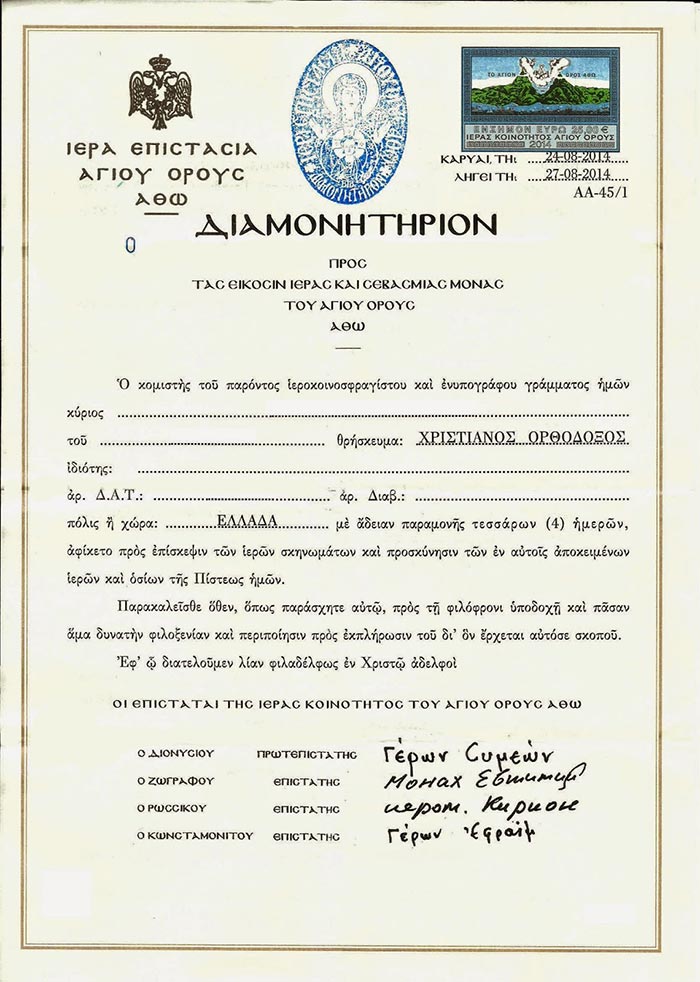 ΙΕΡΑ ΕΠΙΣΤΑΣΙΑ
ΑΓΙΟΥ ΟΡΟΥΣ
ΑΘΩ
ΤΟ ΑΓΙΟΝ ΟΡΟΣ ΑΘΩ
ΕΝΣΗΜΟΝ ΕΥΡΩ 25,00 €
ΙΕΡΑΣ ΚΟΙΝΟΤΗΤΟΣ ΑΓΙΟΥ ΟΡΟΥΣ
2014
ΚΑΡΥΑΙ, ΤΗ: 24-08-2014
ΛΗΓΕΙ ΤΗ: 27-08-2014
ΑΑ-45/1
ΔΙΑΜΟΝΗΤΗΡΙΟΝ
0
ΠΡΟΣ
ΤΑΣ ΕΙΚΟΣΙΝ ΙΕΡΑΣ ΚΑΙ ΣΕΒΑΣΜΙΑΣ ΜΟΝΑΣ
ΤΟΥ ΑΓΙΟΥ ΟΡΟΥΣ
ΑΘΩ
Ὁ κομιστὴς τοῦ παρόντος ἱεροκοινοσφραγίστου καὶ ἐνυπογράφου γράμματος ἡμῶν
κύριος
τοῦ θρήσκευμα: ΧΡΙΣΤΙΑΝΟΣ ΟΡΘΟΔΟΞΟΣ
ἰδιότης:
ἀρ. Δ.Α.Τ.: ἀρ. Διαβ.:
πόλις ἢ χώρα: ΕΛΛΑΔΑ μὲ ἄδειαν παραμονῆς τεσσάρων (4) ἡμερῶν,
ἀφίκετο πρὸς ἐπίσκεψιν τῶν ἱερῶν σκηνωμάτων καὶ προσκύνησιν τῶν ἐν αὐτοῖς ἀποκειμένων
ἱερῶν καὶ ὁσίων τῆς Πίστεως ἡμῶν.
Παρακαλεῖσθε ὅθεν, ὅπως παράσχητε αὐτῷ, πρὸς τῇ φιλόφρονι ὑποδοχῇ καὶ πᾶσαν
ἅμα δυνατὴν φιλοξενίαν καὶ περιποίησιν πρὸς ἐκπλήρωσιν τοῦ δι' ὃν ἔρχεται αὐτόσε σκοποῦ.
Ἐφ' ᾧ διατελοῦμεν λίαν φιλαδέλφως ἐν Χριστῷ ἀδελφοὶ
ΟΙ ΕΠΙΣΤΑΤΑΙ ΤΗΣ ΙΕΡΑΣ ΚΟΙΝΟΤΗΤΟΣ ΤΟΥ ΑΓΙΟΥ ΟΡΟΥΣ ΑΘΩ
Ο ΔΙΟΝΥΣΙΟΥ ΠΡΩΤΕΠΙΣΤΑΤΗΣ Γέρων Συμεών
Ο ΖΩΓΡΑΦΟΥ ΕΠΙΣΤΑΤΗΣ Монах
Ο ΡΩΣΣΙΚΟΥ ΕΠΙΣΤΑΤΗΣ иером. Кирион
Ο ΚΩΝΣΤΑΜΟΝΙΤΟΥ ΕΠΙΣΤΑΤΗΣ Γέρων Ἐφραίμ